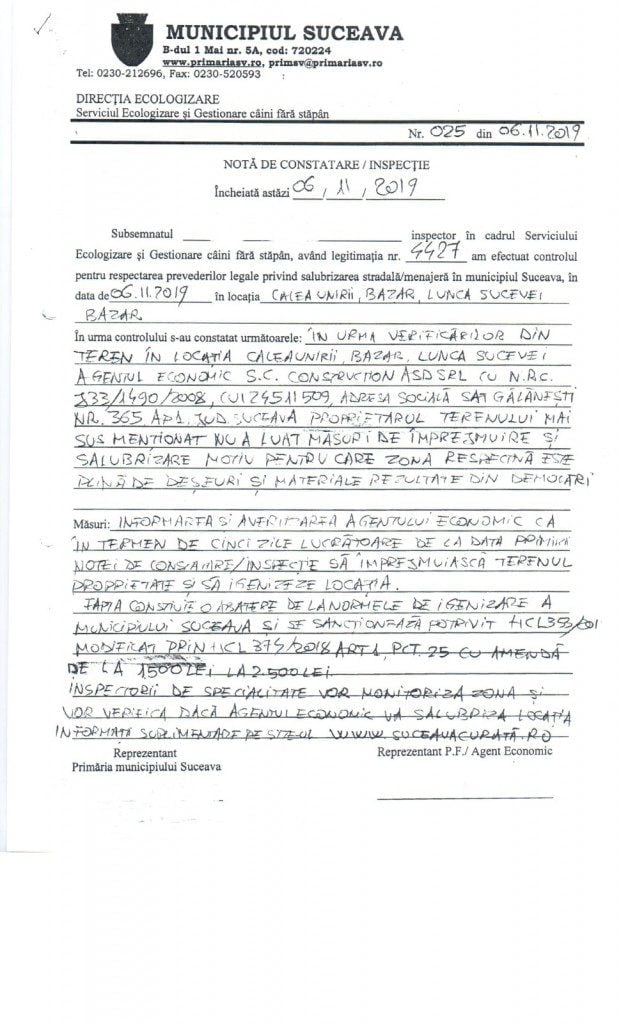 MUNICIPIUL SUCEAVA
B-dul 1 Mai nr. 5A, cod: 720224
www.primariasv.ro, primsv@primariasv.ro
Tel: 0230-212696, Fax: 0230-520593
DIRECȚIA ECOLOGIZARE
Serviciul Ecologizare și Gestionare câini fără stăpân
Nr. 025 din 06.11.2019
NOTĂ DE CONSTATARE / INSPECȚIE
Încheiată astăzi 06 / 11 / 2019
Subsemnat inspector în cadrul Serviciului
Ecologizare și Gestionare câini fără stăpân, având legitimația nr. 4427 am efectuat controlul
pentru respectarea prevederilor legale privind salubrizarea stradală/menajeră în municipiul Suceava, în
data de 06.11.2019 în locația CALEA UNIRII, BAZAR, LUNCA SUCEVEI
BAZAR
În urma controlului s-au constatat următoarele: ÎN URMA VERIFICĂRILOR DIN
TEREN ÎN LOCAȚIA CALEA UNIRII, BAZAR, LUNCA SUCEVEI
AGENTUL ECONOMIC S.C. CONSTRUCTION ASD SRL CU N.R.C.
J33/1490/2008, CUI 24511509, ADRESA SOCIALĂ SAT GĂLĂNEȘTI
NR. 365 AP1, JUD SUCEAVA PROPRIETARUL TERENULUI MAI
SUS MENTIONAT NU A LUAT MĂSURI DE ÎMPREJMUIRE ȘI
SALUBRIZARE MOTIV PENTRU CARE ZONA RESPECTIVĂ ESTE
PLINĂ DE DEȘEURI ȘI MATERIALE REZULTATE DIN DEMOLĂRI
Măsuri: INFORMAREA SI AVERTIZAREA AGENTULUI ECONOMIC CA
ÎN TERMEN DE CINCI ZILE LUCRĂTOARE DE LA DATA PRIMIRII
NOTEI DE CONSTATARE/INSPECȚIE SĂ ÎMPREJMUIASCĂ TERENUL
PROPRIETATE ȘI SĂ IGENIZEZE LOCAȚIA.
FAPTA CONSTITUIE O ABATERE DE LA NORMELE DE IGENIZARE A
MUNICIPIULUI SUCEAVA ȘI SE SANCTIONEAZĂ POTRIVIT HCL
MODIFICAT PRIN HCL /2018 ART 1, PCT. 25 CU AMENDĂ
DE LA 1500 LEI LA 2.500 LEI
INSPECTORII DE SPECIALITATE VOR MONITORIZA ZONA ȘI
VOR VERIFICA DACĂ AGENTUL ECONOMIC VA SALUBRIZA LOCAȚIA
INFORMAȚII SUPLIMENTARE PE SITEUL WWW.SUCEAVACURATĂ.RO
Reprezentant Reprezentant P.F./ Agent Economic
Primăria municipiului Suceava